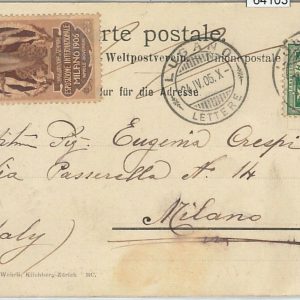 64103
Carte postale
Weltpostverein. Union postale
Nur für die Adresse
ESPOSIZIONE INTERNAZIONALE
MILANO 1906
LUGANO
24.IV.05.X-
LETTERE
Eugenia Crespi
Via Passarella No. 14
Milano
(Italy)
Wehrli, Kilchberg-Zürich